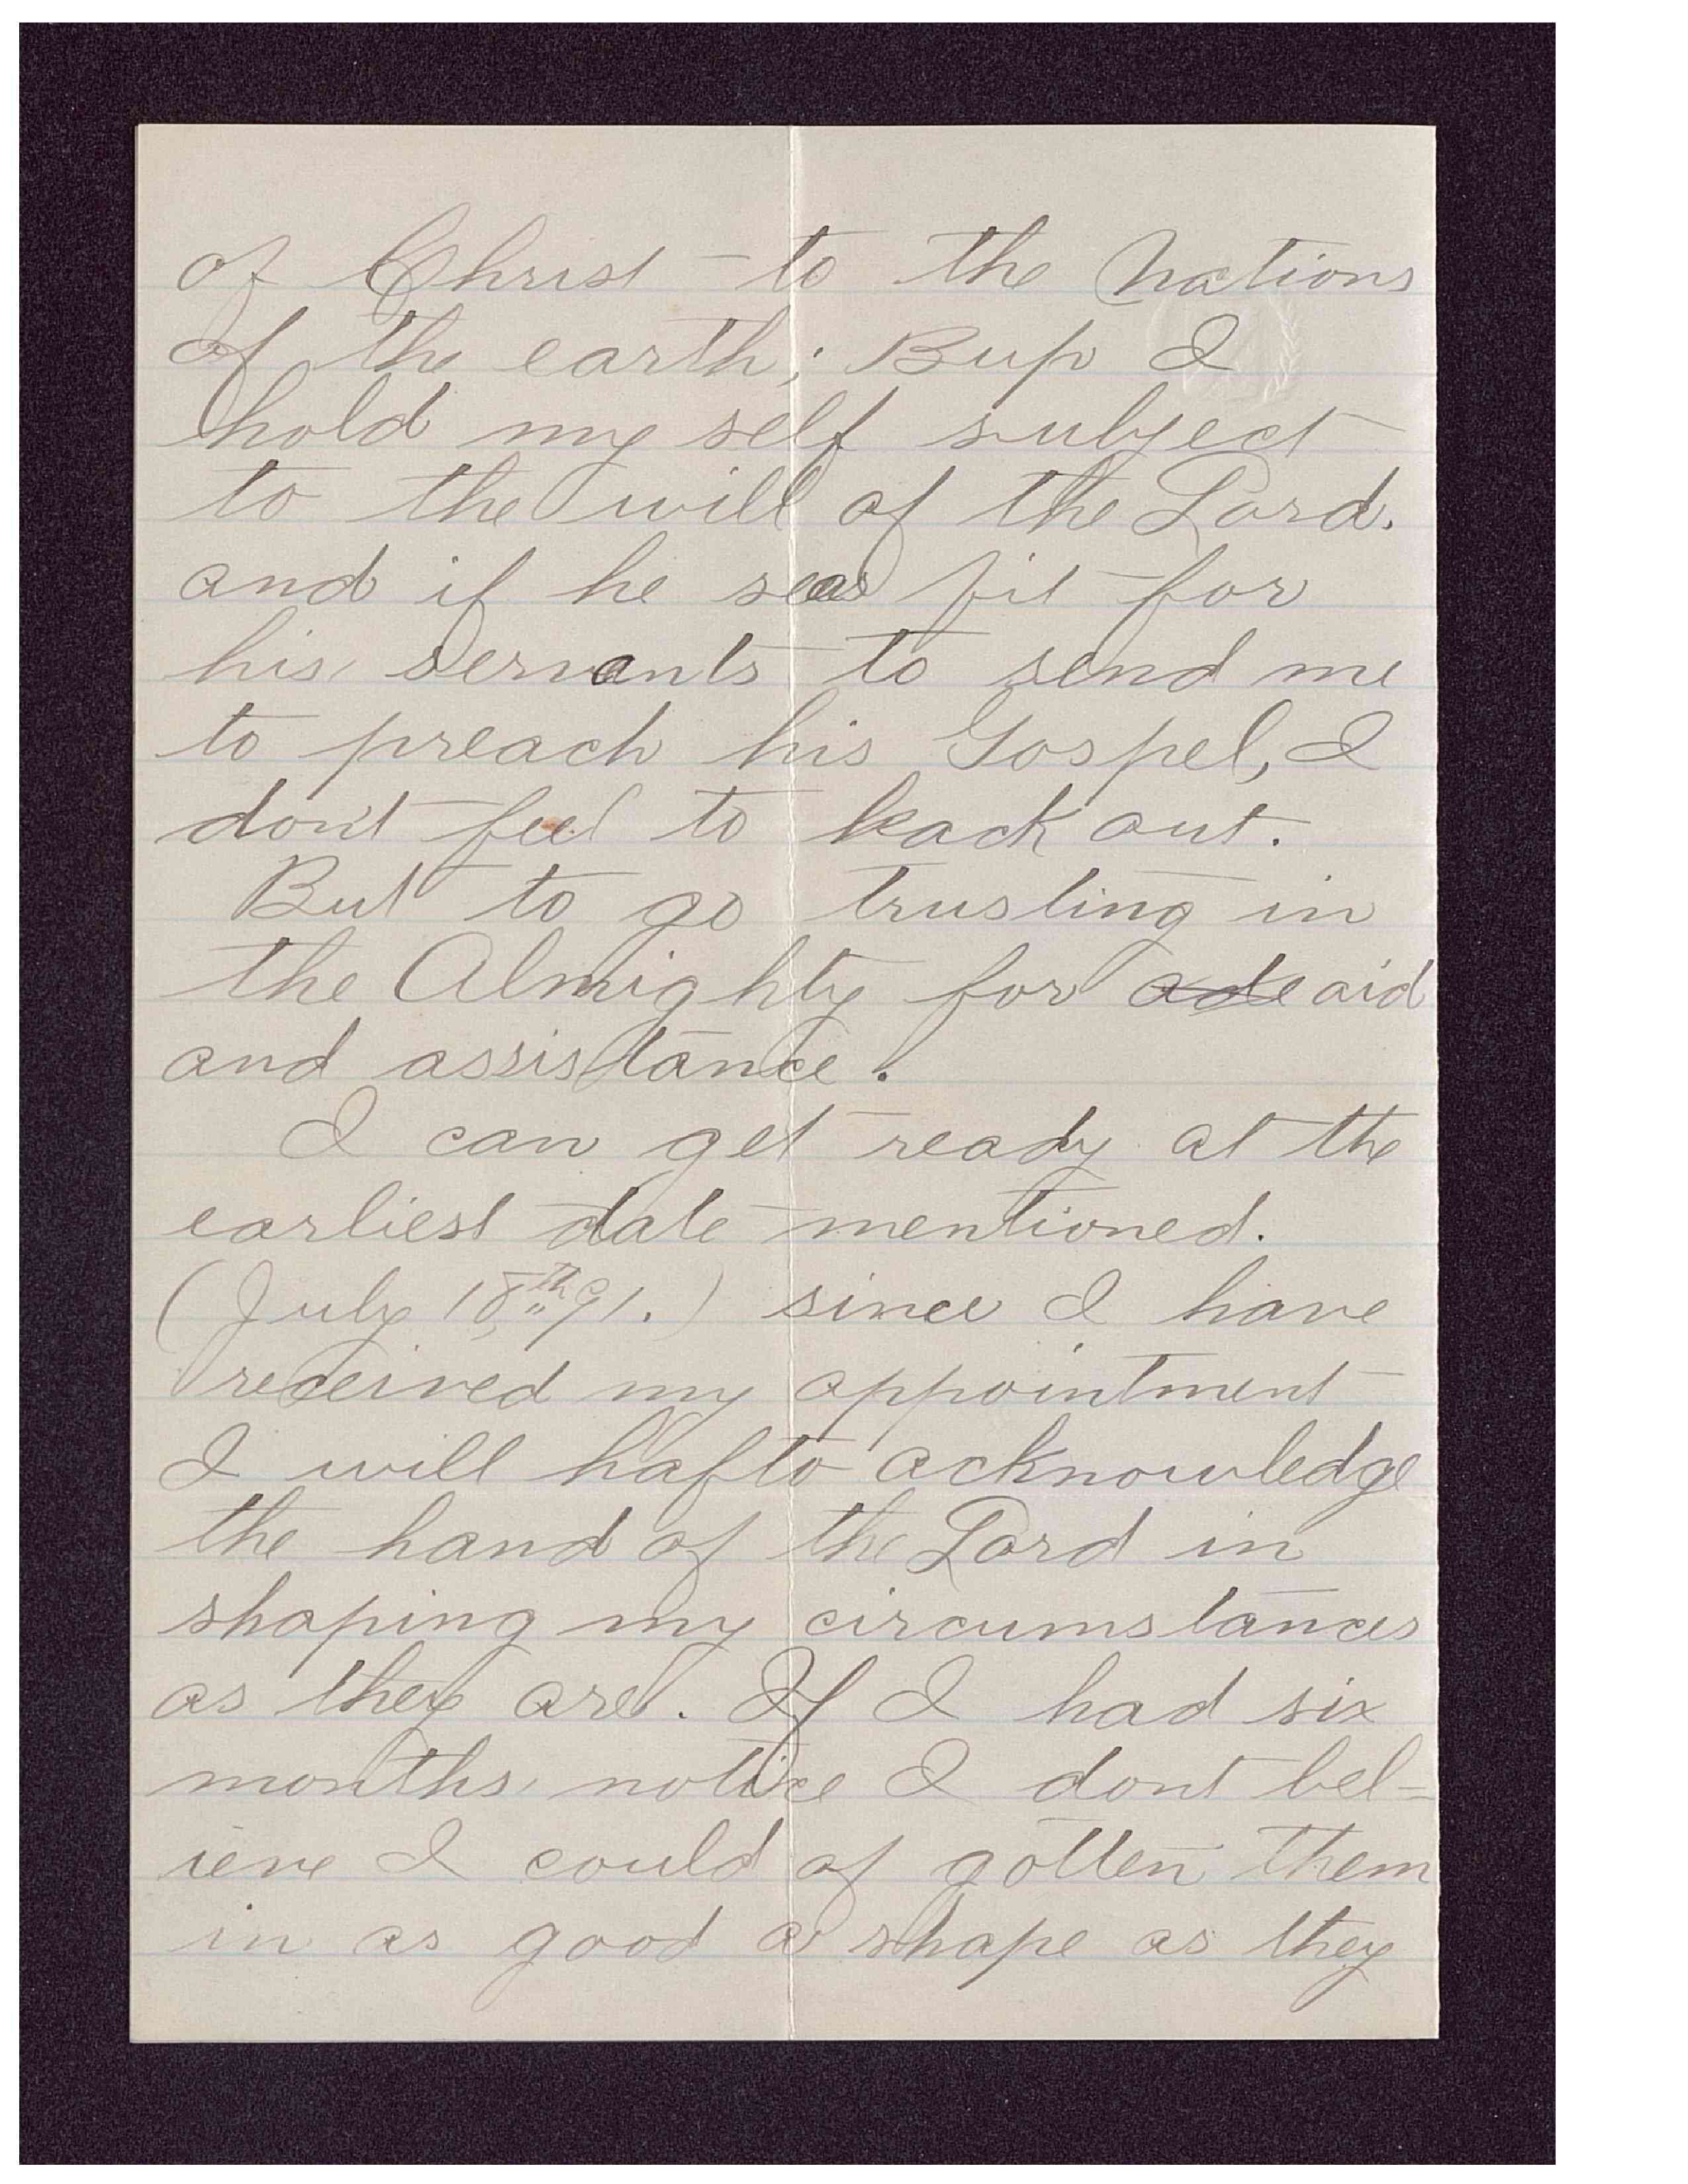 of Christ to the Nations
of the earth; Bup I
hold my self subject
to the will of the Lord.
and if he seas fit for
his servants to send me
to preach his Gospel, I
don't feel to back out.
But to go trusting in
the Almighty for ade aid
and assistance.
I can get ready at the
earliest date mentioned.
(July 18th 91.) since I have
received my appointment
I will hafto acknowledge
the hand of the Lord in
shaping my circumstances
as they are. If I had six
months notice I dont bel=
ieve I could of gotten them
in as good a shape as they